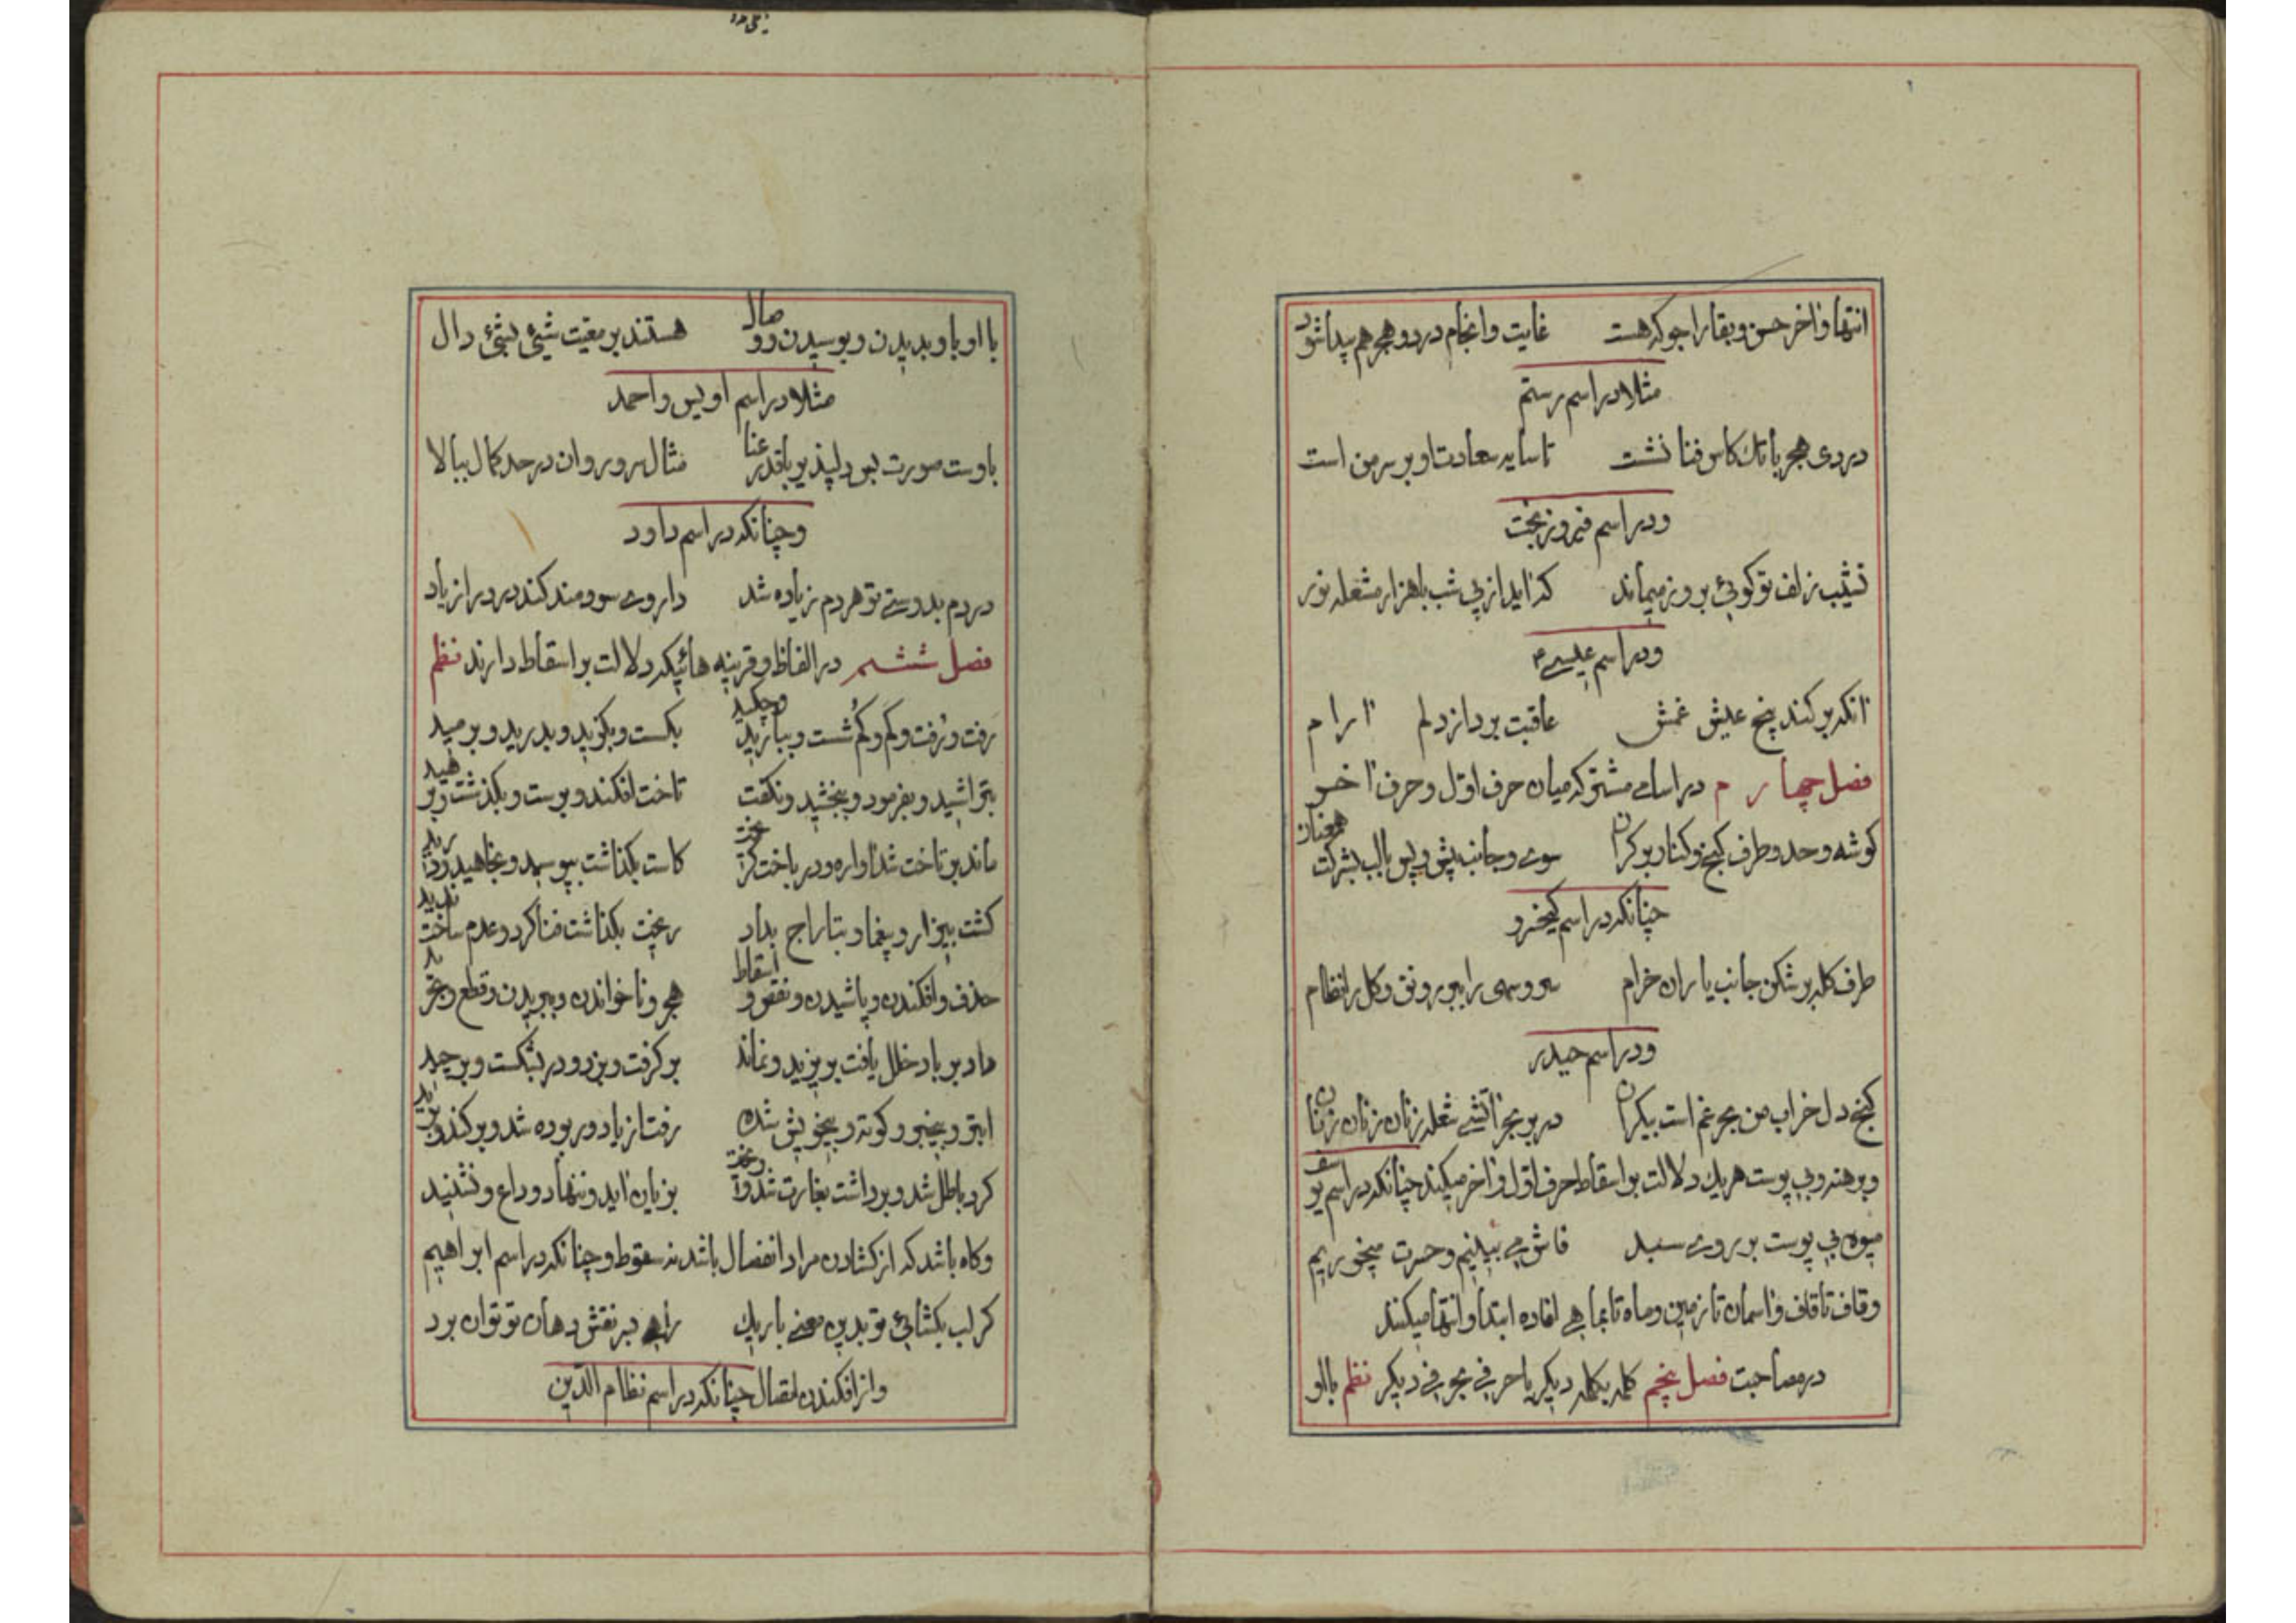 انتها و آخر حسن و بقا را جو که هست غایت و انجام درد و هجر هم پیدا شود
مثلا در اسم رستم
دردی هجر با تک کاس فنا نشت تا سایه سعادت او بر سر من است
و در اسم فیروزبخت
نشیب زلف تو کوئی بروز میماند که آید از پی شب با هزار مشعله نور
و در اسم عیسی
آنکه بر کند بیخ عیش غمش عاقبت برد از دلم آرام
فصل چهارم در اسامی مشترکه میان حرف اول و حرف آخر
کوشه و حد و طرف کنج و کنار و بر کران سوی و جانب پیش و پس با لب بشرکت همعنان
چنانکه در اسم کیخسرو
طرف کله بر شکن جانب یاران خرام سرو سهی را ببر رونق و کل را نظام
و در اسم حیدر
کنج دل خراب من بحر غم است بیکران در بر بحر آتشی شعله زنان زنان زنان
و برهنه و بی پوست هریک دلالت بر اسقاط حرف اول و آخر میکند چنانکه در اسم یوسف
میوه بی پوست بر روی سبد فاش می بینیم و حسرت میخوریم
و قاف تا قاف و آسمان تا زمین و ماه تا بماهی افاده ابتدا و انتها میکنند
در مصاحبت فصل پنجم کلمه بکلمه دیکر یا حرفی بحرفی دیکر نظم با او
با او با و بدیدن و بوسیدن و وصال هستند بر معیت شیئی بشیئی دال
مثلا در اسم اویس و احمد
باوست صورت بس دلپذیر با قد رعنا مثال سرو روان در حد کمال ببالا
و چنانکه در اسم داود
دردم بدوستی تو هر دم زیاده شد داروی سودمند کند درد را زیاد
فصل ششم در الفاظ و قرینه هائیکه دلالت بر اسقاط دارند نظم
رفت و رُفت و کم و کم کُشت و ببارید و چکید بکست و بکوید و بدرید و برمید
بتراشید و بفرمود و ببخشید و نکفت تاخت افکند و برست و بکذشت و برهید
ماند بر تاخت شد آواره و در باخت کریخت کاست بکذاشت بپوسید و بخاهید
کشت بیزار و یغما و بتاراج بداد ریخت بکذاشت فنا کرد و عدم ساخت ندید
حذف و افکندن و پاشیدن و نقص و اسقاط هجر و ناخواندن و ببریدن و قطع و
داد بر باد خلل یافت بریزید و نماند برکرفت و بزد و در بشکست و برچید
ابتر و بیخبر و کوته و بیخویش شده رفت از یاد و ربوده شد و برکند و برید
کرد باطل شد و برداشت بغارت شد و آویخت بزیان آید و ننهاد و وداع و نشنید
و کاه باشد که از کشادن مراد انفصال باشد نه سقوط و چنانکه در اسم ابراهیم
کر لب بکشائی تو بدین معنی باریک راهی بر نقش دهان تو توان برد
و از افکندن اتصال چنانکه در اسم نظام الدین